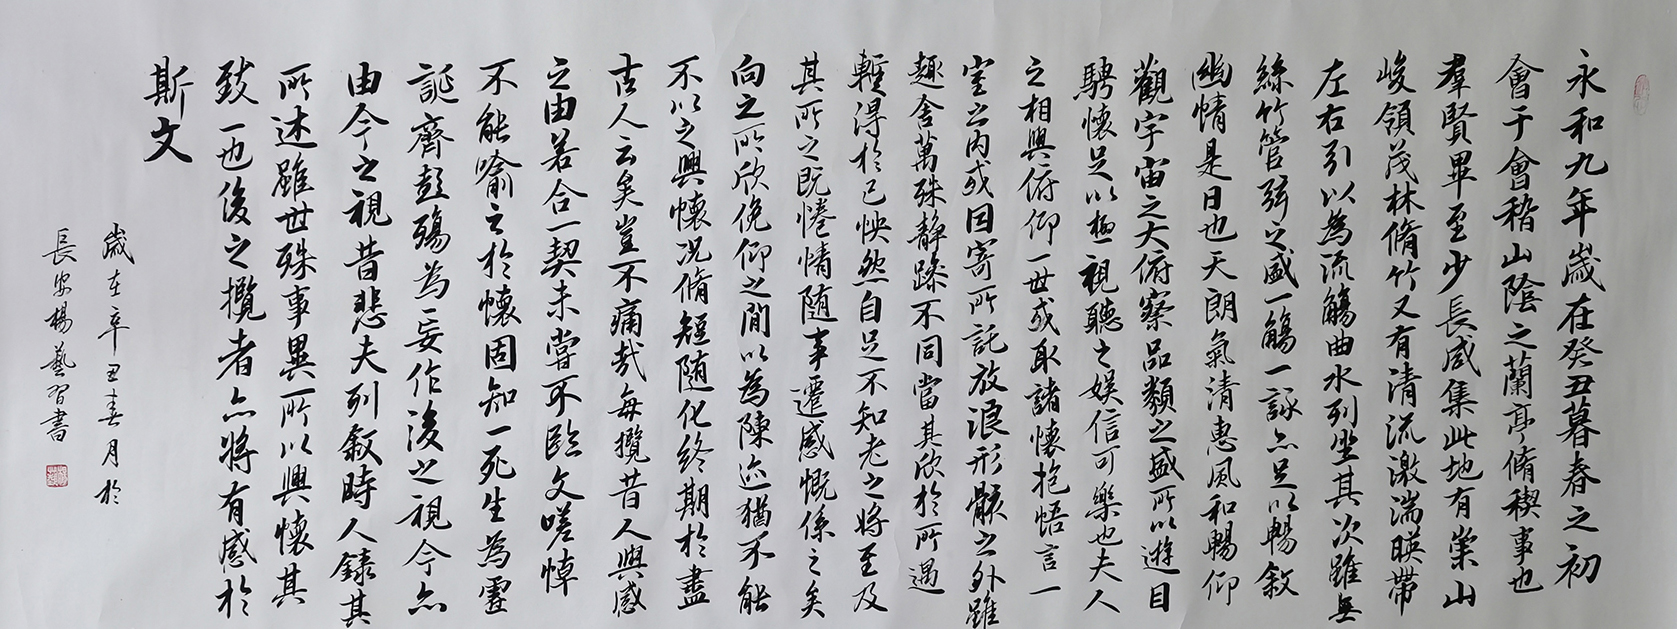 永和九年歲在癸丑暮春之初
會于會稽山陰之蘭亭脩稧事也
羣賢畢至少長咸集此地有崇山
峻領茂林脩竹又有清流激湍暎帶
左右引以為流觴曲水列坐其次雖無
絲竹管弦之盛一觴一詠亦足以暢敘
幽情是日也天朗氣清惠風和暢仰
觀宇宙之大俯察品類之盛所以遊目
騁懷足以極視聽之娛信可樂也夫人
之相與俯仰一世或取諸懷抱悟言一
室之內或因寄所託放浪形骸之外雖
趣舍萬殊静躁不同當其欣於所遇
蹔得於己怏然自足不知老之將至及
其所之既惓情隨事遷感慨係之矣
向之所欣俛仰之閒以為陳迹猶不能
不以之興懷况脩短隨化終期於盡
古人云矣豈不痛哉每攬昔人興感
之由若合一契未嘗不臨文嗟悼
不能喻之於懷固知一死生為虛
誕齊彭殤為妄作後之視今亦
由今之視昔悲夫列敘時人錄其
所述雖世殊事異所以興懷其
致一也後之攬者亦將有感於
斯文
歲在辛丑春月於
長安楊藝習書